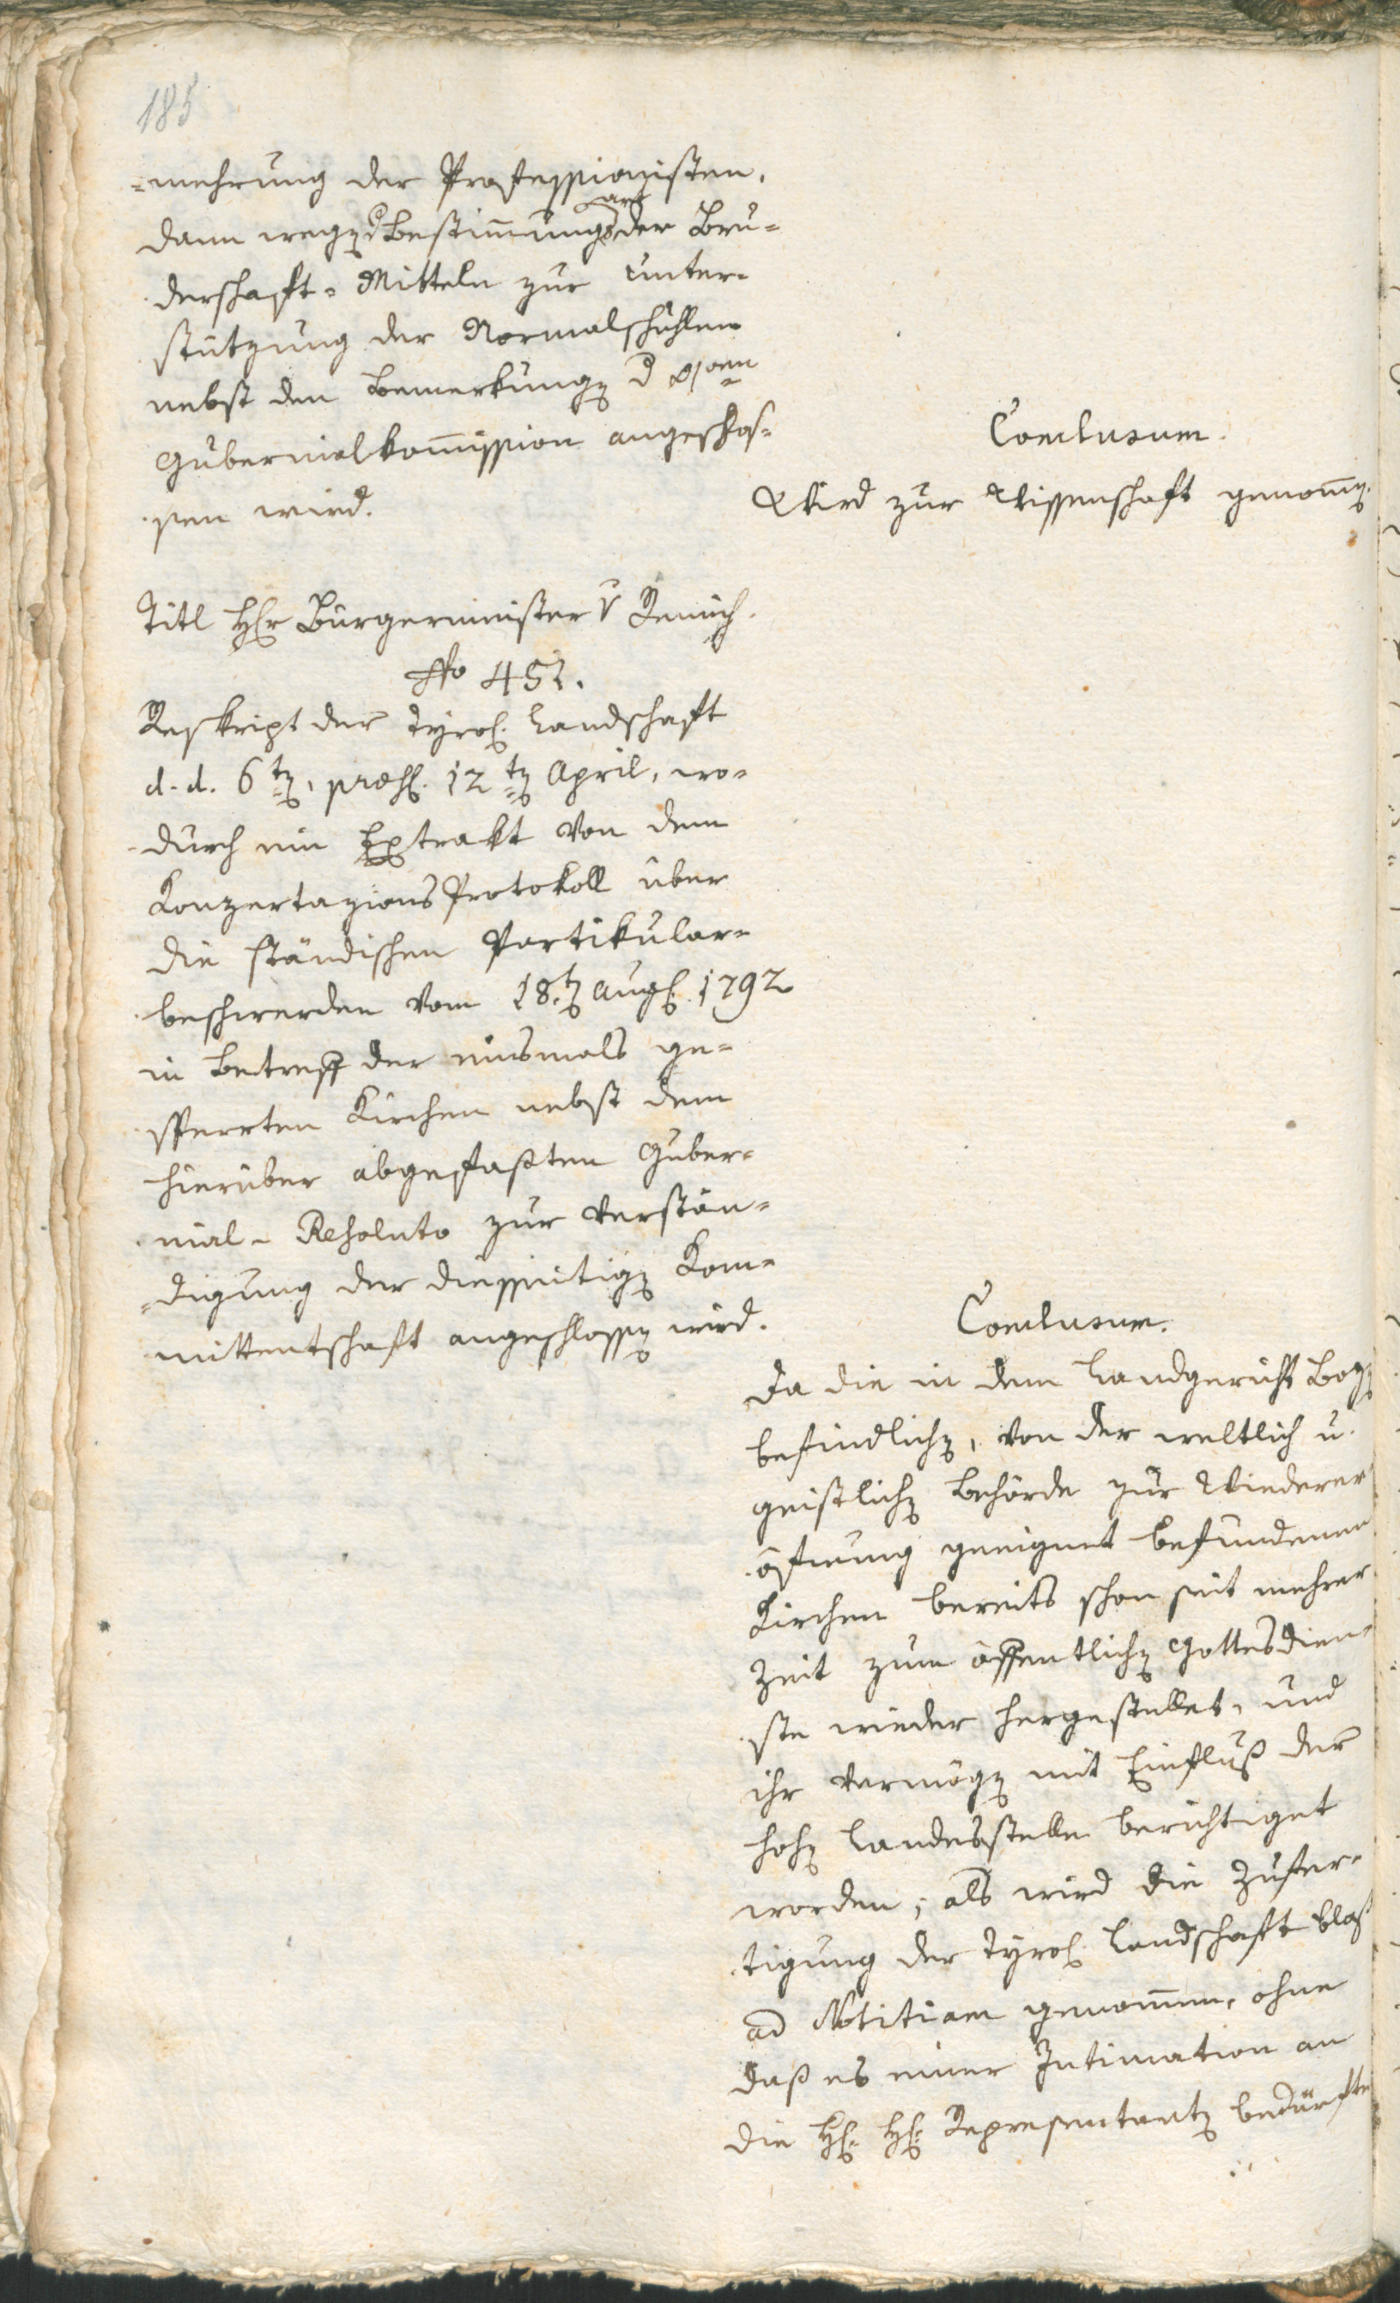 185
-mehrung der Professionisten,
dann wegen d Bestimmungsart der Bru-
derschaft-Mitteln zur Unter-
stützung der Normalschullen
nebst den Bemerkungen d
Gubernialkommission angeschos-
sen wird.
Conclusum.
Wird zur Wissenschaft genommen.
Titl Herr Bürgermeister v Remich.
No 451.
Reskript der Tyrol. Landschaft
d. d. 6ten, præs. 12ten April, wo-
durch ein Extrakt von dem
Konzertazions Protokoll über
die ständischen Partikular-
beschwerden vom 18ten Aug. 1792
in Betreff der einsmals ge-
sperrten Kirchen nebst dem
hierüber abgefaßten Guber-
nial-Resoluto zur Verstän-
digung der diesseitigen Kom-
mittentschaft angeschlossen wird.
Conclusum.
Da die in dem Landgericht Bozen
befindlichen, von der weltlich u.
geistlichen Behörde zur Wiederer-
öffnung geeignet befundenen
Kirchen bereits schon seit mehrer
Zeit zum öffentlichen Gottesdien-
ste wieder hergestellet, und
ihr Vermögen mit Einfluß der
hohen Landesstelle berichtiget
worden; als wird die Zufer-
tigung der Tyrol. Landschaft bloß
ad Notitiam genommen, ohne
daß es einer Intimation an
die H. H. Representanten bedürfte